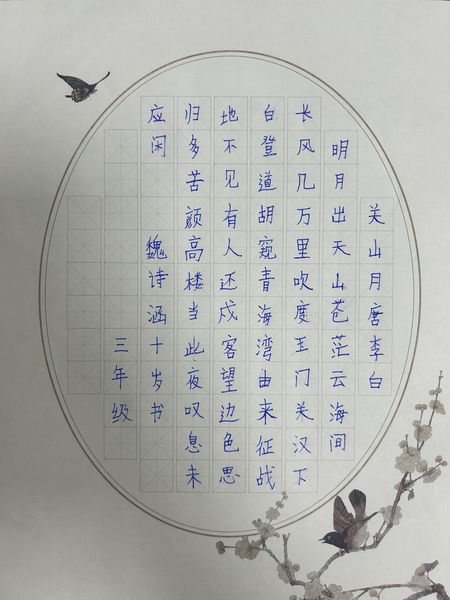 关山月唐李白
明月出天山苍茫云海间
长风几万里吹度玉门关汉下
白登道胡窥青海湾由来征战
地不见有人还戍客望边色思
归多苦颜高楼当此夜叹息未
应闲 魏诗涵十岁书
三年级